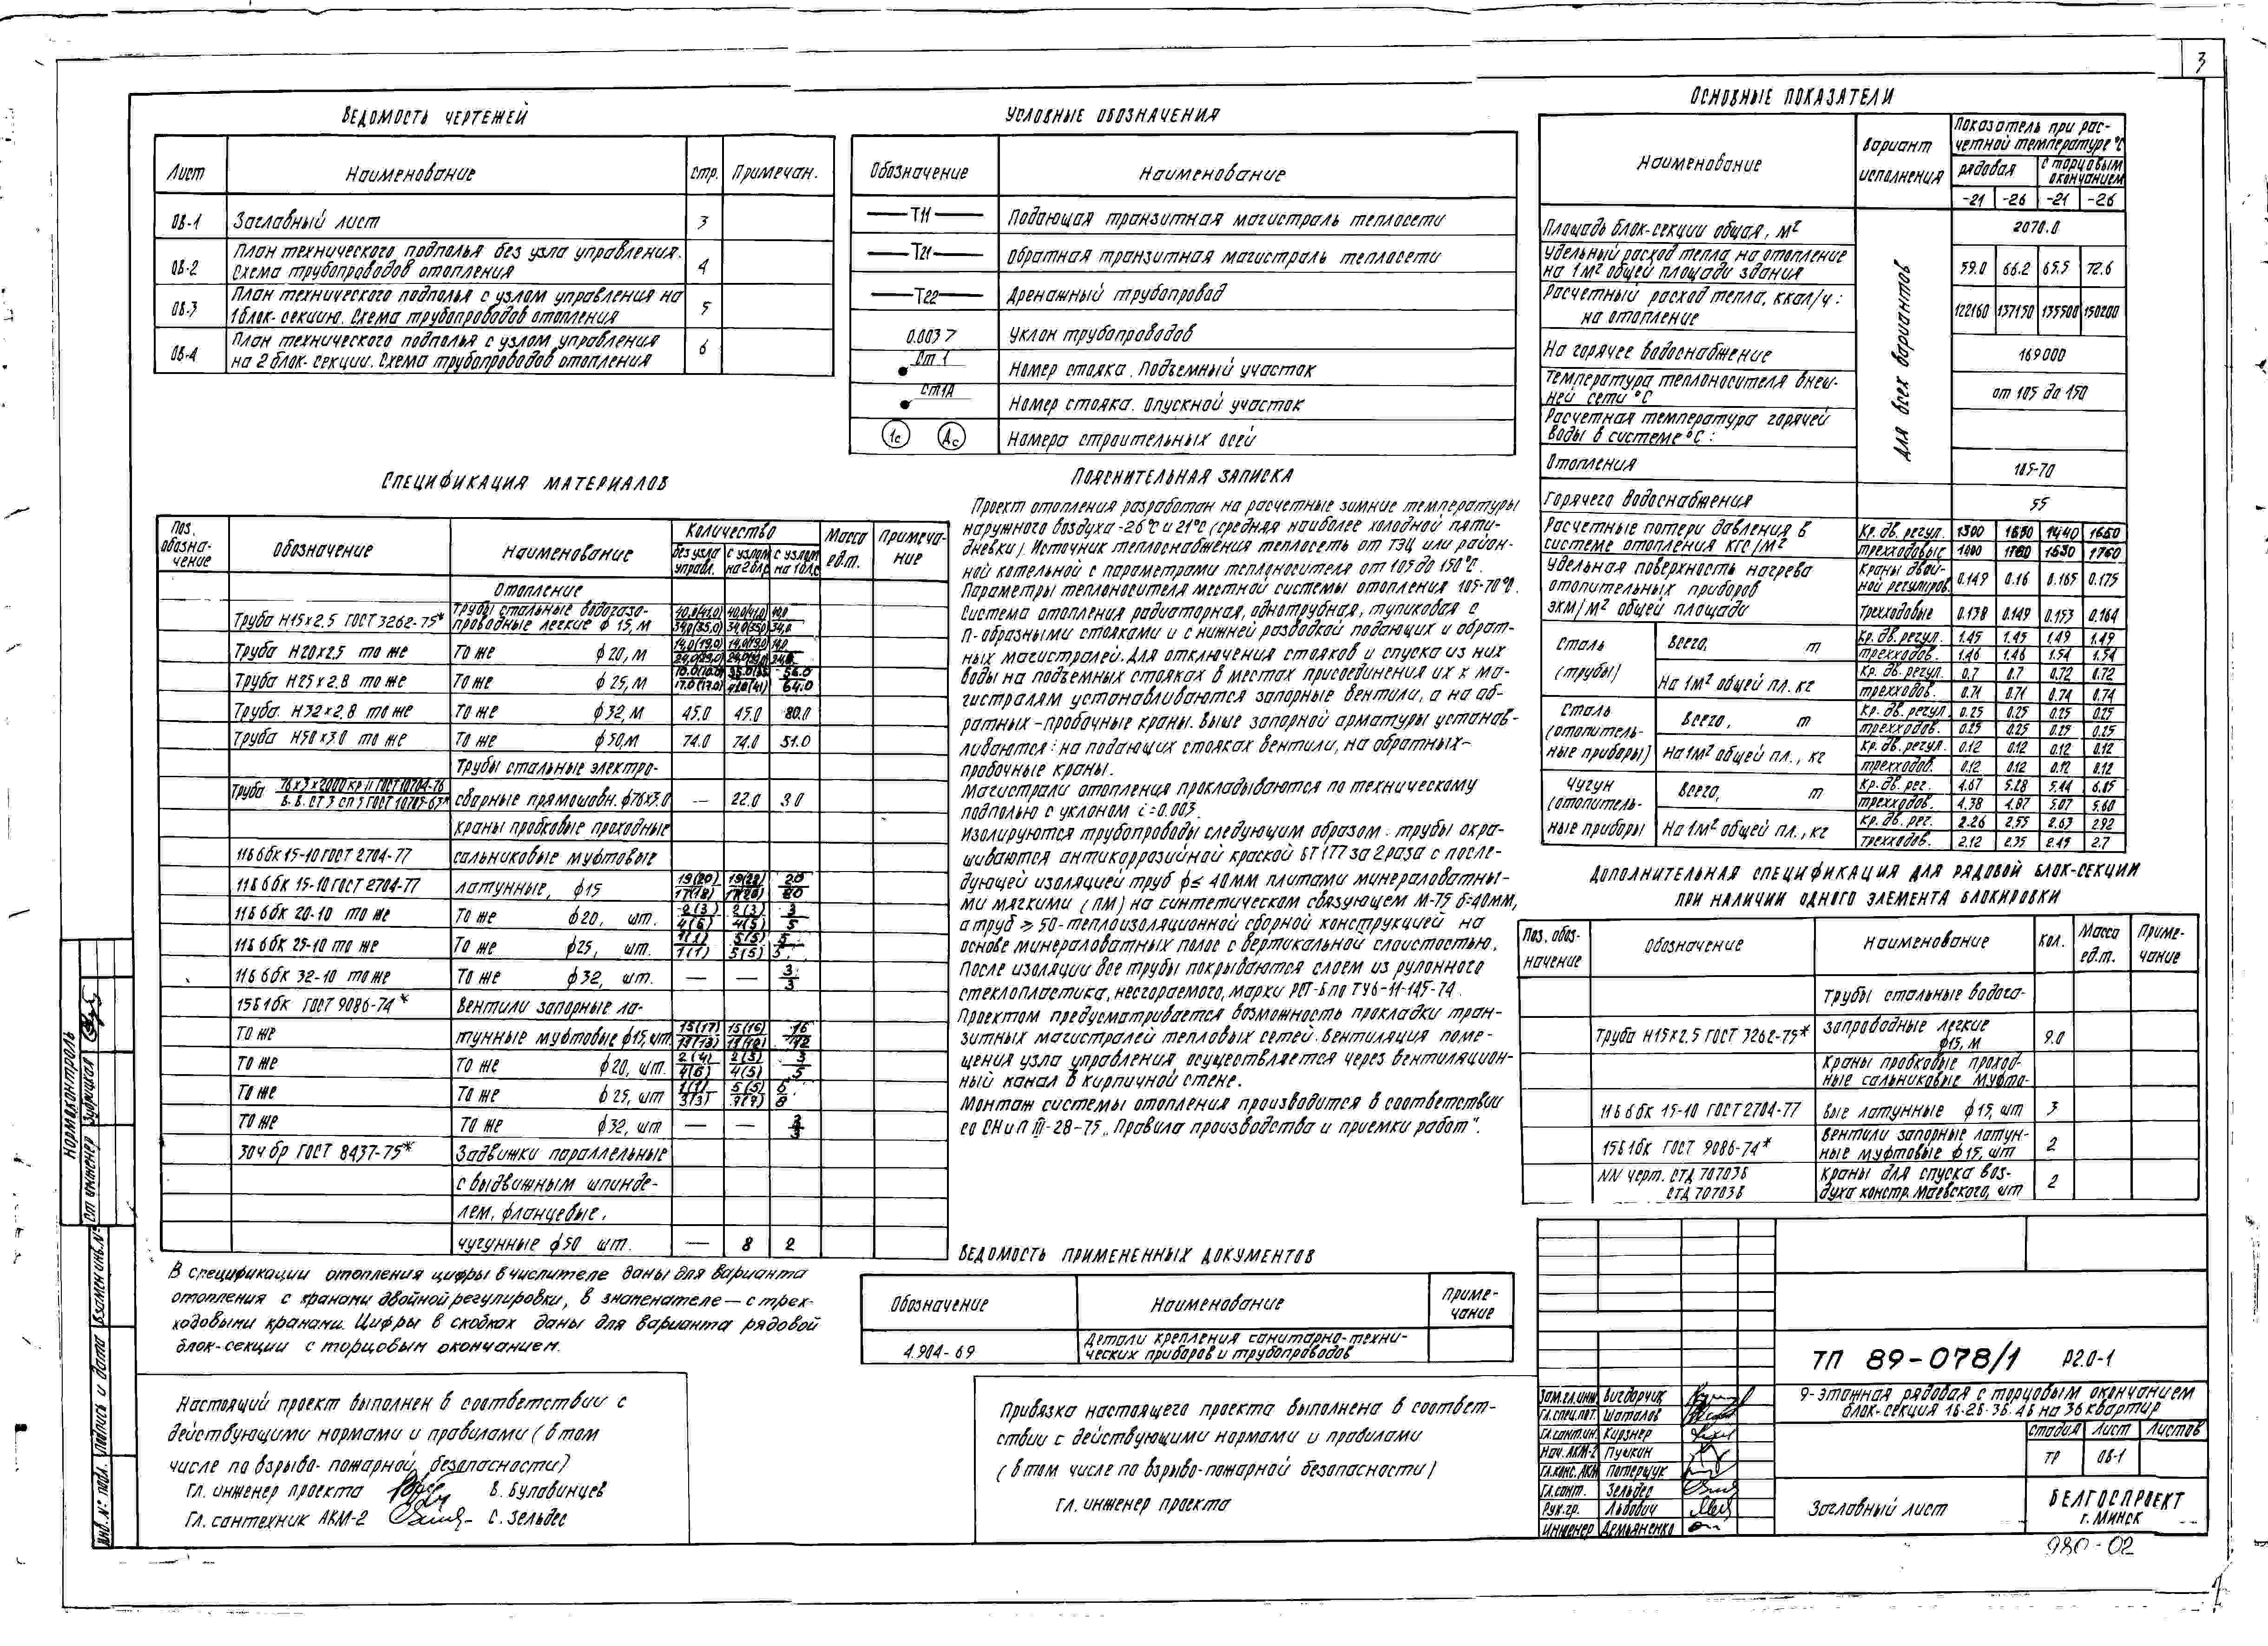 3
ВЕДОМОСТЬ ЧЕРТЕЖЕЙ
Лист Наименование Стр. Примечан.
ОВ-1 Заглавный лист 3
ОВ-2 План технического подполья без узла управления. Схема трубопроводов отопления 4
ОВ-3 План технического подполья с узлом управления на 1 блок-секцию. Схема трубопроводов отопления 5
ОВ-4 План технического подполья с узлом управления на 2 блок-секции. Схема трубопроводов отопления 6
УСЛОВНЫЕ ОБОЗНАЧЕНИЯ
Обозначение Наименование
Т11 Подающая транзитная магистраль теплосети
Т21 Обратная транзитная магистраль теплосети
Т22 Дренажный трубопровод
0.003 Уклон трубопроводов
Ст 1 Номер стояка. Подъемный участок
Ст1А Номер стояка. Опускной участок
1с Ас Номера строительных осей
ОСНОВНЫЕ ПОКАЗАТЕЛИ
Наименование Вариант исполнения Показатель при расчетной температуре °С
рядовая с торцовым окончанием
-21 -26 -21 -26
для всех вариантов
Площадь блок-секции общая, м² 2070.0
Удельный расход тепла на отопление на 1м² общей площади здания 59.0 66.2 65.5 72.6
Расчетный расход тепла, ккал/ч:
на отопление 122160 137150 135500 150200
На горячее водоснабжение 169000
Температура теплоносителя внешней сети °С от 105 до 150
Расчетная температура горячей воды в системе °С:
Отопления 105-70
Горячего водоснабжения 55
Расчетные потери давления в системе отопления кгс/м²
Кр. дв. регул. 1300 1440
трехходовые 1760
Удельная поверхность нагрева отопительных приборов экм/м² общей площади
Краны двойной регулиров. 0.149 0.16 0.165 0.175
Трехходовые 0.138 0.149 0.153 0.164
Сталь (трубы)
Всего, т
Кр. дв. регул. 1.45 1.45 1.49 1.49
трехходов. 1.46 1.46 1.54 1.54
На 1м² общей пл. кг
Кр. дв. регул. 0.7 0.7 0.72 0.72
трехходов. 0.71 0.71 0.74 0.74
Сталь (отопительные приборы)
Всего, т
Кр. дв. регул. 0.25 0.25 0.25 0.25
трехходов. 0.25 0.25 0.25 0.25
На 1м² общей пл., кг
Кр. дв. регул. 0.12 0.12 0.12 0.12
трехходов. 0.12 0.12 0.12 0.12
Чугун (отопительные приборы
Всего, т
Кр. дв. рег. 4.67 5.28 5.44 6.05
трехходов. 4.38 4.87 5.07 5.60
На 1м² общей пл., кг
Кр. дв. рег. 2.26 2.55 2.63 2.92
трехходов. 2.12 2.35 2.45 2.7
СПЕЦИФИКАЦИЯ МАТЕРИАЛОВ
Поз. обозначение Обозначение Наименование Количество Масса ед.т. Примечание
без узла управл. с узлом на 2 б/с с узлом на 1 б/с
Отопление
Труба Н15х2,5 ГОСТ 3262-75* Трубы стальные водогазопроводные легкие ф 15, м
Труба Н20х2,5 то же То же ф 20, м
Труба Н25х2,8 то же То же ф 25, м
Труба Н32х2,8 то же То же ф32, м 45.0 45.0 80.0
Труба Н50х3.0 то же То же ф50,м 74.0 74.0 51.0
Трубы стальные электро-
Труба сварные прямошовн. ф76х3.0 — 22.0 3.0
краны пробковые проходные
11Б6бк 15-10 ГОСТ 2704-77 сальниковые муфтовые
11Б6бк 15-10 ГОСТ 2704-77 латунные, ф15
11Б6бк 20-10 то же То же ф20, шт.
11Б6бк 25-10 то же То же ф25, шт.
11Б6бк 32-10 то же То же ф32, шт. — — 3/3
15Б1бк ГОСТ 9086-74* Вентили запорные ла-
То же тунные муфтовые ф15, шт
То же То же ф20, шт.
То же То же ф25, шт
То же То же ф32, шт — —
30ч6р ГОСТ 8437-75* Задвижки параллельные
с выдвижным шпинде-
лем, фланцевые,
чугунные ф50 шт. — 8 2
В спецификации отопления цифры в числителе даны для варианта
отопления с кранами двойной регулировки, в знаменателе — с трех-
ходовыми кранами. Цифры в скобках даны для варианта рядовой
блок-секции с торцовым окончанием.
ПОЯСНИТЕЛЬНАЯ ЗАПИСКА
Проект отопления разработан на расчетные зимние температуры
наружного воздуха -26°С и 21°С (средняя наиболее холодной пяти-
дневки). Источник теплоснабжения теплосеть от ТЭЦ или район-
ной котельной с параметрами теплоносителя от 105 до 150°С.
Параметры теплоносителя местной системы отопления 105-70°С.
Система отопления радиаторная, однотрубная, тупиковая с
П-образными стояками и с нижней разводкой подающих и обрат-
ных магистралей. Для отключения стояков и спуска из них
воды на подъемных стояках в местах присоединения их к ма-
гистралям устанавливаются запорные вентили, а на об-
ратных-пробочные краны. Выше запорной арматуры устанав-
ливаются: на подающих стояках вентили, на обратных-
пробочные краны.
Магистрали отопления прокладываются по техническому
подполью с уклоном i=0.003.
Изолируются трубопроводы следующим образом: трубы окра-
шиваются антикоррозийной краской БТ 177 за 2 раза с после-
дующей изоляцией труб ф≤ 40мм плитами минераловатны-
ми мягкими (ПМ) на синтетическом связующем М-75 б=40мм,
а труб ≥ 50-теплоизоляционной сборной конструкцией на
основе минераловатных полос с вертикальной слоистостью.
После изоляции все трубы покрываются слоем из рулонного
стеклопластика, несгораемого, марки РСТ-Б по ТУ6-11-145-74.
Проектом предусматривается возможность прокладки тран-
зитных магистралей тепловых сетей. Вентиляция поме-
щения узла управления осуществляется через вентиляцион-
ный канал в кирпичной стене.
Монтаж системы отопления производится в соответствии
со СНиП III-28-75 „Правила производства и приемки работ".
ДОПОЛНИТЕЛЬНАЯ СПЕЦИФИКАЦИЯ ДЛЯ РЯДОВОЙ БЛОК-СЕКЦИИ
ПРИ НАЛИЧИИ ОДНОГО ЭЛЕМЕНТА БЛОКИРОВКИ
Поз. обозначение Обозначение Наименование Кол. Масса ед.т. Примечание
Трубы стальные водога-
Труба Н15х2,5 ГОСТ 3262-75* зопроводные легкие ф15, м 9.0
Краны пробковые проход-
ные сальниковые муфто-
11Б6бк 15-10 ГОСТ 2704-77 вые латунные ф15, шт 3
15Б1бк ГОСТ 9086-74* Вентили запорные латунные муфтовые ф15, шт 2
NN черт. СТД 7070Зб СТД 7070Зб Краны для спуска воздуха констр. Маевского, шт 2
ВЕДОМОСТЬ ПРИМЕНЕННЫХ ДОКУМЕНТОВ
Обозначение Наименование Примечание
4.904-69 Детали крепления санитарно-технических приборов и трубопроводов
Настоящий проект выполнен в соответствии с
действующими нормами и правилами (в том
числе по взрыво-пожарной безопасности)
Гл. инженер проекта В. Булавинцев
Гл. сантехник АКМ-2 С. Зельдес
Привязка настоящего проекта выполнена в соответ-
ствии с действующими нормами и правилами
(в том числе по взрыво-пожарной безопасности)
гл. инженер проекта
Нормоконтроль
Ст инженер
Взамен инв. №
Подпись и дата
Инв. № подл.
ТП 89-078/1 Р2.0-1
9-этажная рядовая с торцовым окончанием
блок-секция 1б-2б-3б-4б на 36 квартир
Стадия Лист Листов
ТР ОВ-1
Зам.гл.инж. Вигдорчик
Гл.спец.пот. Шаталов
Гл.сантин. Кирзнер
Нач. АКМ-2 Пушкин
Гл.конс.АКМ Потерщук
Гл.сант. Зельдес
Рук.гр. Львович
Инженер Демьяненко
Заглавный лист
БЕЛГОСПРОЕКТ
г. МИНСК
980-02